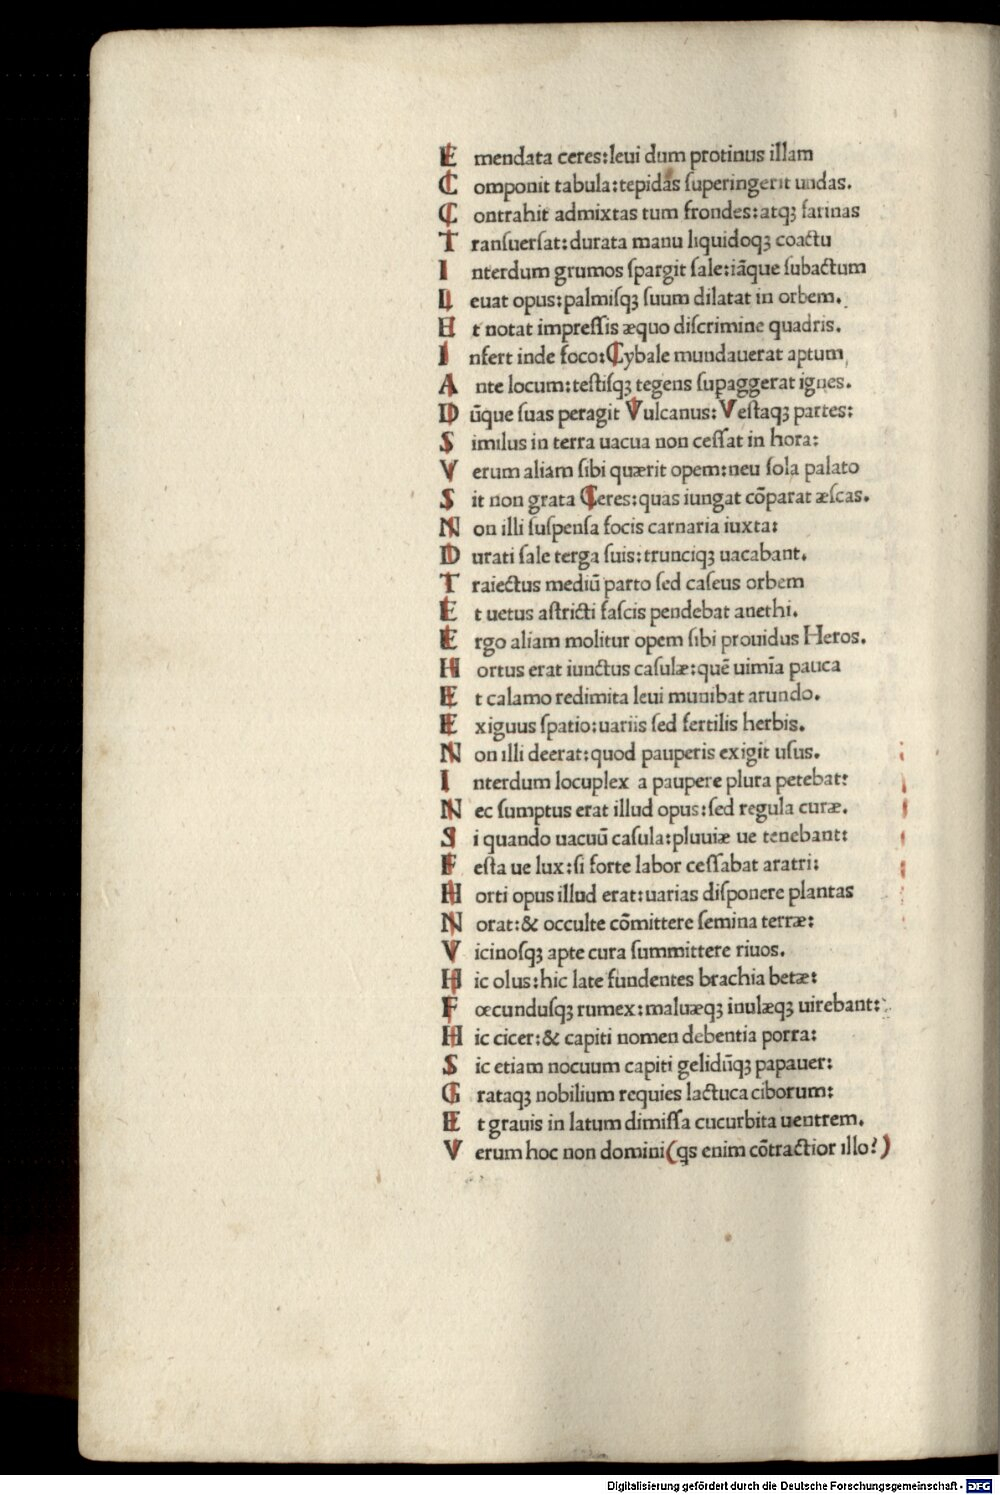 E mendata ceres:leui dum protinus illam
C omponit tabula:tepidas ſuperingerit undas.
C ontrahit admixtas tum frondes:atqꝫ farinas
T ranſuerſat:durata manu liquidoqꝫ coactu
I nterdum grumos ſpargit ſale:iāque ſubactum
L euat opus:palmiſqꝫ ſuum dilatat in orbem.
E t notat impreſſis æquo diſcrimine quadris.
I nfert inde foco:Cybale mundauerat aptum
A nte locum:teſtiſqꝫ tegens ſupaggerat ignes.
D ūque ſuas peragit Vulcanus:Veſtaqꝫ partes:
S imilus in terra uacua non ceſſat in hora:
V erum aliam ſibi quærit opem:neu ſola palato
S it non grata Ceres:quas iungat cōparat æſcas.
N on illi ſuſpenſa focis carnaria iuxta:
D urati ſale terga ſuis:trunciqꝫ uacabant.
T raiectus mediū parto ſed caſeus orbem
E t uetus aſtricti faſcis pendebat anethi.
E rgo aliam molitur opem ſibi prouidus Heros.
H ortus erat iunctus caſulæ:quē uimīa pauca
E t calamo redimita leui munibat arundo.
E xiguus ſpatio:uariis ſed fertilis herbis.
N on illi deerat:quod pauperis exigit uſus.
I nterdum locuplex a paupere plura petebat:
N ec ſumptus erat illud opus:ſed regula curæ.
S i quando uacuū caſula:pluuiæ ue tenebant:
F eſta ue lux:ſi forte labor ceſſabat aratri:
H orti opus illud erat:uarias diſponere plantas
N orat:& occulte cōmittere ſemina terræ:
V icinoſqꝫ apte cura ſummittere riuos.
H ic olus:hic late fundentes brachia betæ:
F œcunduſqꝫ rumex:maluæqꝫ inulæqꝫ uirebant:
H ic cicer:& capiti nomen debentia porra:
S ic etiam nocuum capiti gelidūqꝫ papauer:
G rataqꝫ nobilium requies lactuca ciborum:
E t grauis in latum dimiſſa cucurbita uentrem.
V erum hoc non domini(qs enim cōtractior illo?)
Digitalisierung gefördert durch die Deutsche Forschungsgemeinschaft - DFG